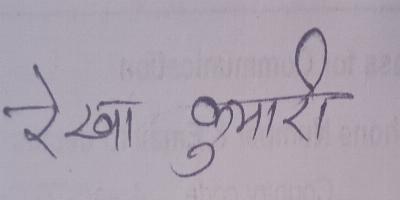 रेखा कुमारी